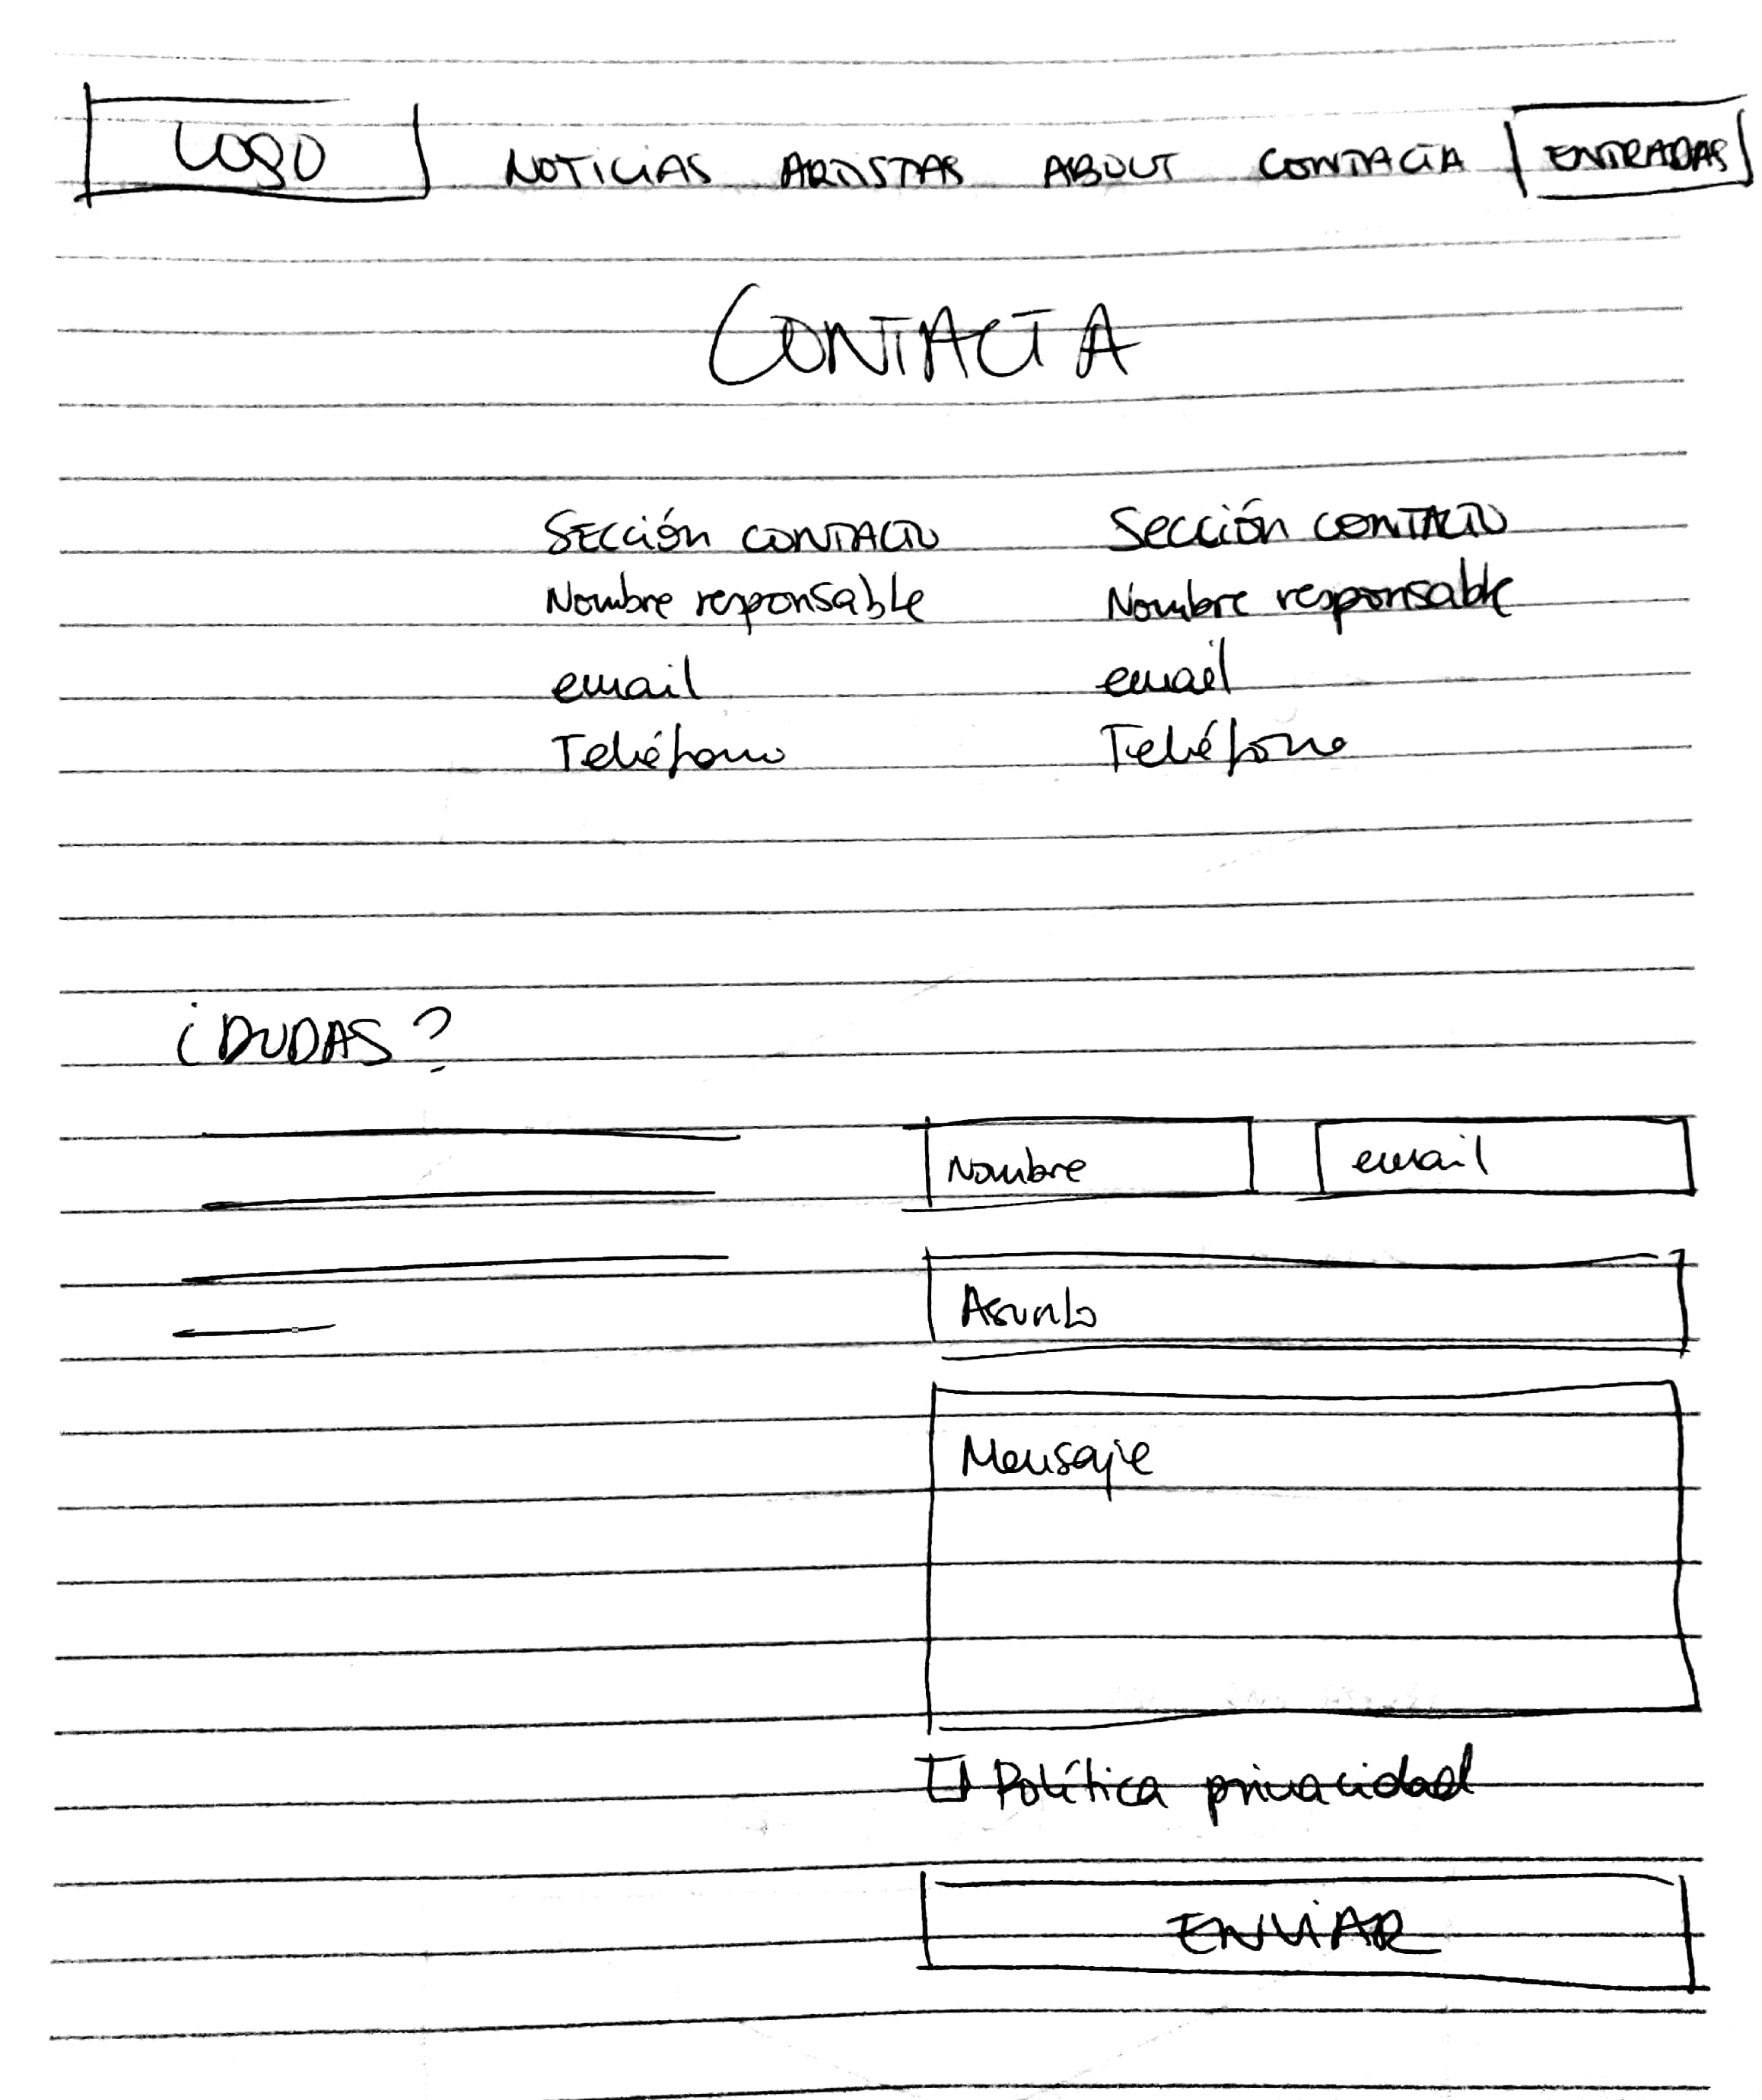 LOGO NOTICIAS ARTISTAS ABOUT CONTACTA ENTRADAS
CONTACTA
Sección CONTACTO Sección CONTACTO
Nombre responsable Nombre responsable
email email
Teléfono Teléfono
¿DUDAS?
Nombre email
Asunto
Mensaje
Política privacidad
ENVIAR